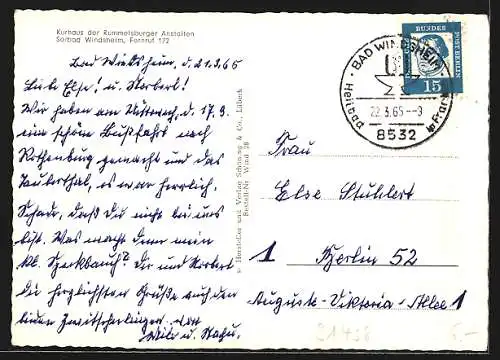 Kurhaus der Rummelsburger Anstalten
Solbad Windsheim, Fernruf 172
Bad Windsheim, d. 21.3.65
Liebe Else! u. Norbert!
Wir haben am Mittwoch, d. 17.3.
eine schöne Busfahrt nach
Rothenburg gemacht und das
Taubertal, es war herrlich.
Schade, daß du nicht bei uns
bist. Was macht denn mein
kl. Speckbauch? Dir und Norbert
die herzlichsten Grüße auch den
beiden
Herstellung und Verlag Schöning & Co., Lübeck
Bestell-Nr. Wind 28
DEUTSCHE BUNDESPOST BERLIN
15
BAD WINDSHEIM
Heilbad
22.3.65--9
8532
Frau
Else Stuhlert
1 Berlin 52
Auguste-Viktoria-Allee 1